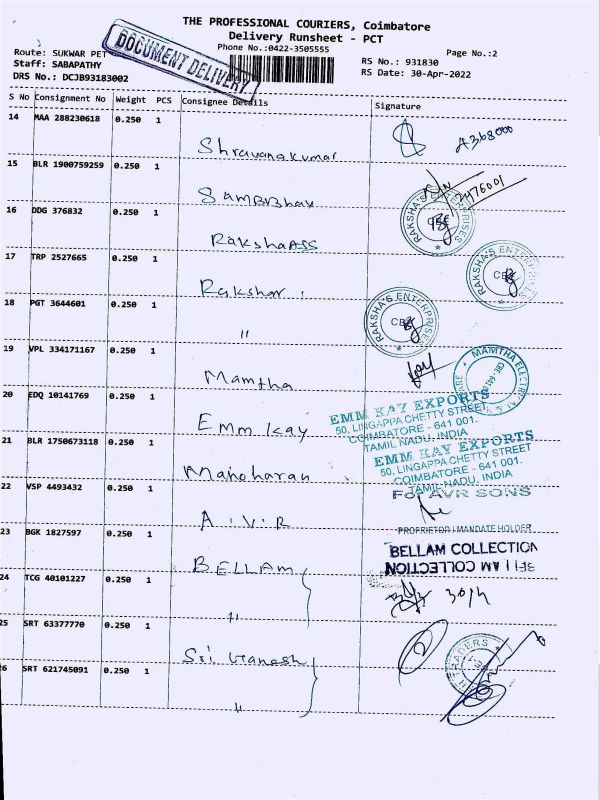 THE PROFESSIONAL COURIERS, Coimbatore
Delivery Runsheet - PCT
Phone No.:0422-3505555
Page No.:2
Route: SUKWAR PET
DOCUMENT DELIVERY
RS No.: 931830
Staff: SABAPATHY
RS Date: 30-Apr-2022
DRS No.: DCJB93183002
S No Consignment No Weight PCS Consignee Details Signature
14 MAA 288230618 0.250 1
Shravanakumar
15 BLR 1900759259 0.250 1
Sambbhav
RAKSHA'S ENTERPRISES
16 DDG 376832 0.250 1
RakshaASS
17 TRP 2527665 0.250 1
RAKSHA'S ENTERPRISES
CBE
Rakshar
18 PGT 3644601 0.250 1
"
RAKSHA'S ENTERPRISES
CBE
19 VPL 334171167 0.250 1
Mamtha
MAMTHA ELECTRICAL
20 EDQ 10141769 0.250 1
Emm Kay
EMM KAY EXPORTS
50, LINGAPPA CHETTY STREET,
COIMBATORE - 641 001.
TAMIL NADU, INDIA
21 BLR 1750673118 0.250 1
Manoharan
EMM KAY EXPORTS
50, LINGAPPA CHETTY STREET
COIMBATORE - 641 001.
TAMIL NADU, INDIA
22 VSP 4493432 0.250 1
A.V.R
For AVR SONS
PROPRIETOR / MANDATE HOLDER
23 BGK 1827597 0.250 1
BELLAM
BELLAM COLLECTION
24 TCG 40101227 0.250 1
"
30/4
25 SRT 63377770 0.250 1
Sri Ganesh
TRADERS
26 SRT 621745091 0.250 1
"